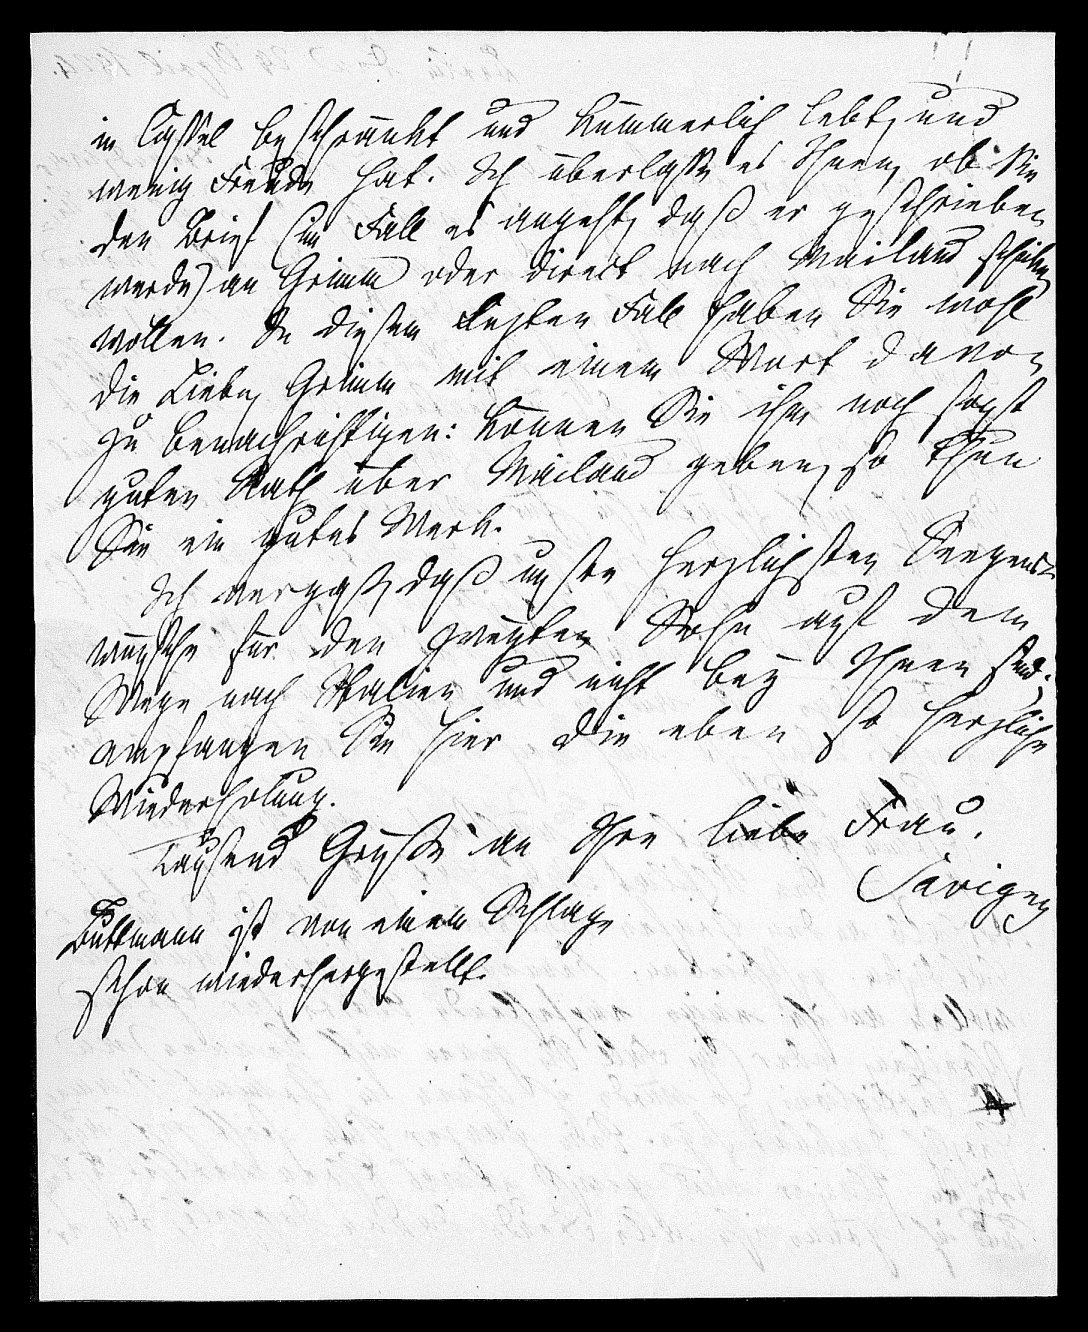 in Cassel beschränkt und kümmerlich lebt, und
wenig Freude hat. Ich überlasse es Ihnen, ob Sie
den Brief (im Fall es angeht, daß er geschrieben
werde) an Grimm oder direct nach Mailand schicken
wollen. In diesem letzten Fall haben Sie wohl
die Liebe, Grimm mit einem Wort davon
zu benachrichtigen: können Sie ihm noch sonst
guten Rath über Mailand geben, so thun
Sie ein gutes Werk.
Ich vergaß, daß unsre herzlichsten Seegens-
wünsche für den zweyten Sohn auf dem
Wege nach Italien und nicht bey Ihnen sind;
empfangen Sie hier die eben so herzliche
Wiederholung.
Tausend Grüße an Ihre liebe Frau.
Savigny
Buttmann ist von einem Schlage
schon wiederhergestellt.